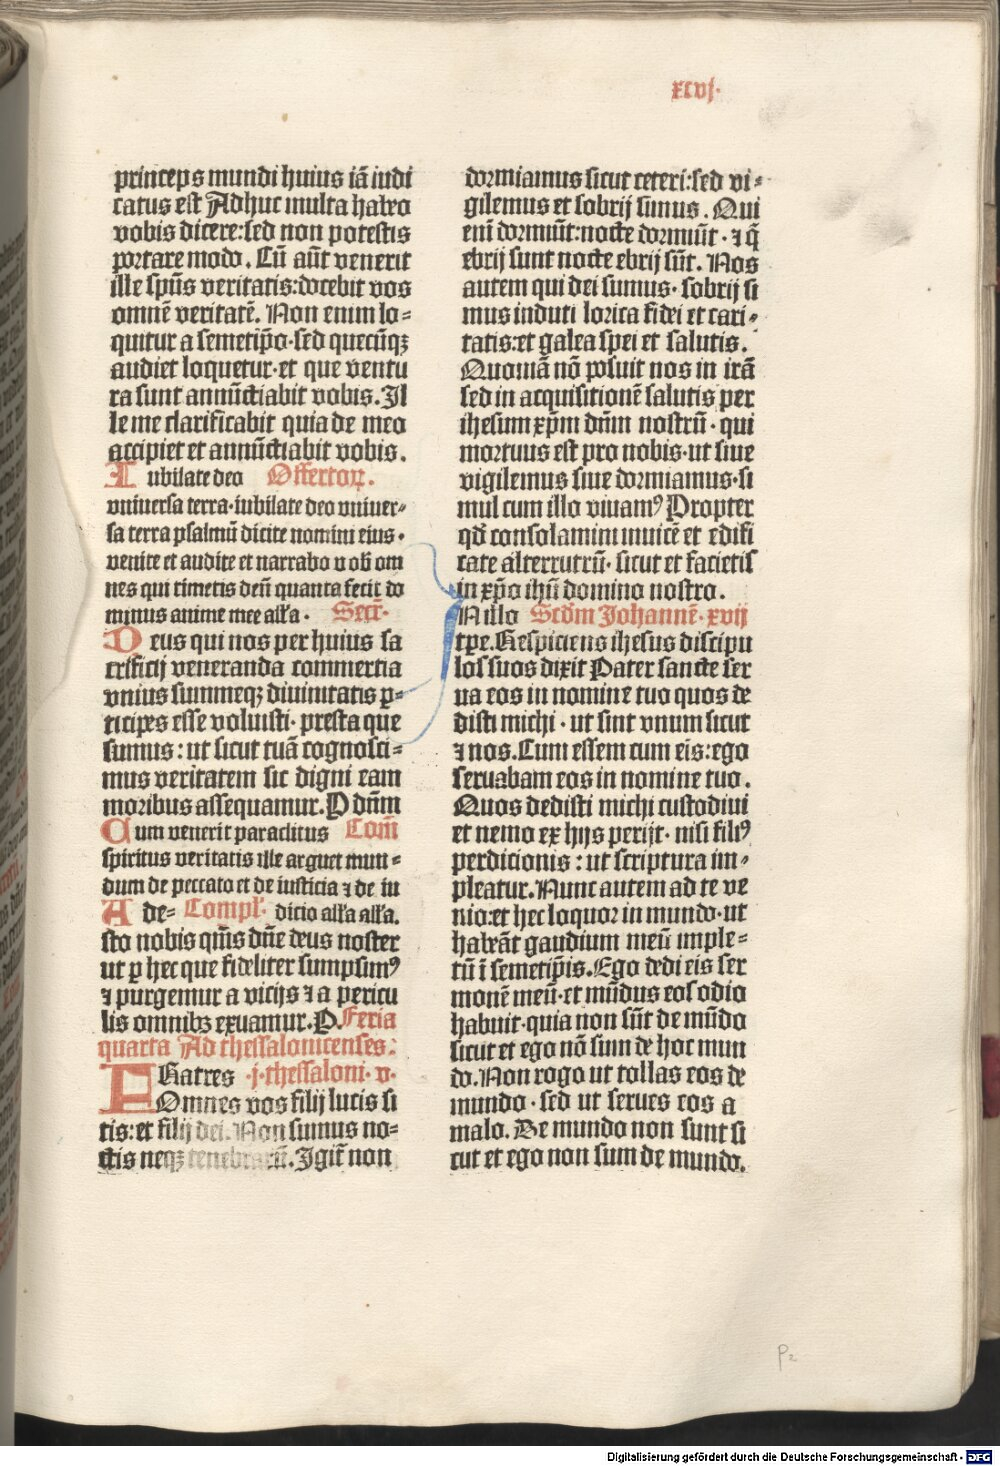 xcvj·
princeps mundi huius iā iudi
catus est Adhuc multa habeo
vobis dicere:sed non potestis
portare modo. Cū aūt venerit
ille spūs veritatis:docebit vos
omnē veritatē. Non enim lo⸗
quitur a semetip̄o·sed quecūqꝫ
audiet loquetur·et que ventu
ra sunt annūctiabit vobis. Il
le me clarificabit quia de meo
accipiet et annūctiabit vobis.
Iubilate deo Offertoꝝ.
vniuersa terra·iubilate deo vniuer⸗
sa terra psalmū dicite nomini eius·
venite et audite et narrabo vob̄ om
nes qui timetis deū quanta fecit do
minus anime mee all'a· Secr̄·
Deus qui nos per huius sa
crificij veneranda commertia
vnius summeqꝫ diuinitatis ꝑ⸗
ticipes esse voluisti· presta que
sumus: ut sicut tuā cognosci⸗
mus veritatem sic digni eam
moribus assequamur. P dn̄m
Cum venerit paraclitus Com̄
spiritus veritatis ille arguet mun⸗
dum de peccato et de iusticia ꝛ de iu
A de⸗ Compl'· dicio all'a all'a.
sto nobis qm̄s dn̄e deus noster
ut ꝑ hec que fideliter sumpsimꝰ
ꝛ purgemur a vicijs ꝛ a pericu
lis omnibꝫ exuamur. P. Feria
quarta Ad thessalonicenses:
FRatres ·j·thessaloni·v·
Omnes vos filij lucis si
tis:et filij dei. Non sumus no⸗
ctis neqꝫ tenebrarū. Igit̄ non
dormiamus sicut ceteri:sed vi⸗
gilemus et sobrij simus. Qui
enī dormiūt:nocte dormiūt· ꝛ q̄
ebrij sunt nocte ebrij sūt. Nos
autem qui dei sumus· sobrij si
mus induti lorica fidei et cari⸗
tatis:et galea spei et salutis.
Quoniā nō posuit nos in irā
sed in acquisitionē salutis per
ihesum xp̄m dn̄m nostrū· qui
mortuus est pro nobis·ut siue
vigilemus siue dormiamus·si
mul cum illo viuamꝰ Propter
qd̄ consolamini inuicē et edifi
cate alterrutrū· sicut et facietis
in xp̄o ihū domino nostro.
IN illo Scdm Johannē·xvij
tpe. Respiciens ihesus discipu
los suos dixit Pater sancte ser
ua eos in nomine tuo quos de
disti michi· ut sint vnum sicut
ꝛ nos. Cum essem cum eis:ego
seruabam eos in nomine tuo.
Quos dedisti michi custodiui
et nemo ex hijs perijt· nisi filiꝰ
perdicionis: ut scriptura im⸗
pleatur. Nunc autem ad te ve
nio:et hec loquor in mundo·ut
habeāt gaudium meū imple⸗
tū ī semetip̄is. Ego dedi eis ser
monē meū·et mūdus eos odio
habuit·quia non sūt de mūdo
sicut et ego nō sum de hoc mun
do. Non rogo ut tollas eos de
mundo· sed ut serues eos a
malo. De mundo non sunt si
cut et ego non sum de mundo.
P2
Digitalisierung gefördert durch die Deutsche Forschungsgemeinschaft - DFG